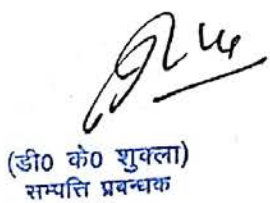 (डी0 के0 शुक्ला)
सम्पत्ति प्रबन्धक